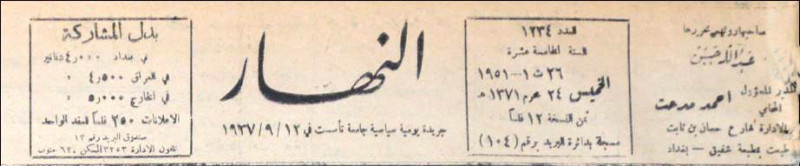 صاحبها ورئيس تحريرها
عبدالله حسن
المدير المسؤول
المحامي
احمد مدحت
الادارة شارع حسان بن ثابت
طبعت بمطبعة شفيق – بغداد
العدد ١٢٣٤
السنة الخامسة عشرة
٢٦ ت١ – ١٩٥١
الخميس ٢٤ محرم ١٣٧١ هـ
ثمن النسخة ١٢ فلساً
مسجلة بدائرة البريد برقم (١٠٤)
النهار
جريدة يومية سياسية جامعة تأسست في ١٢/٩/١٩٣٧
بدل المشاركة
في بغداد ٤٫٠٠٠ دنانير
في العراق ٤٫٥٠٠ »
في الخارج ٥٫٠٠٠ »
الاعلانات ٢٥٠ فلساً لعقد الواحد
صندوق البريد رقم ١٣
تلفون الادارة ٣٢٥٣ المسكن ٦٢٠ جنوب